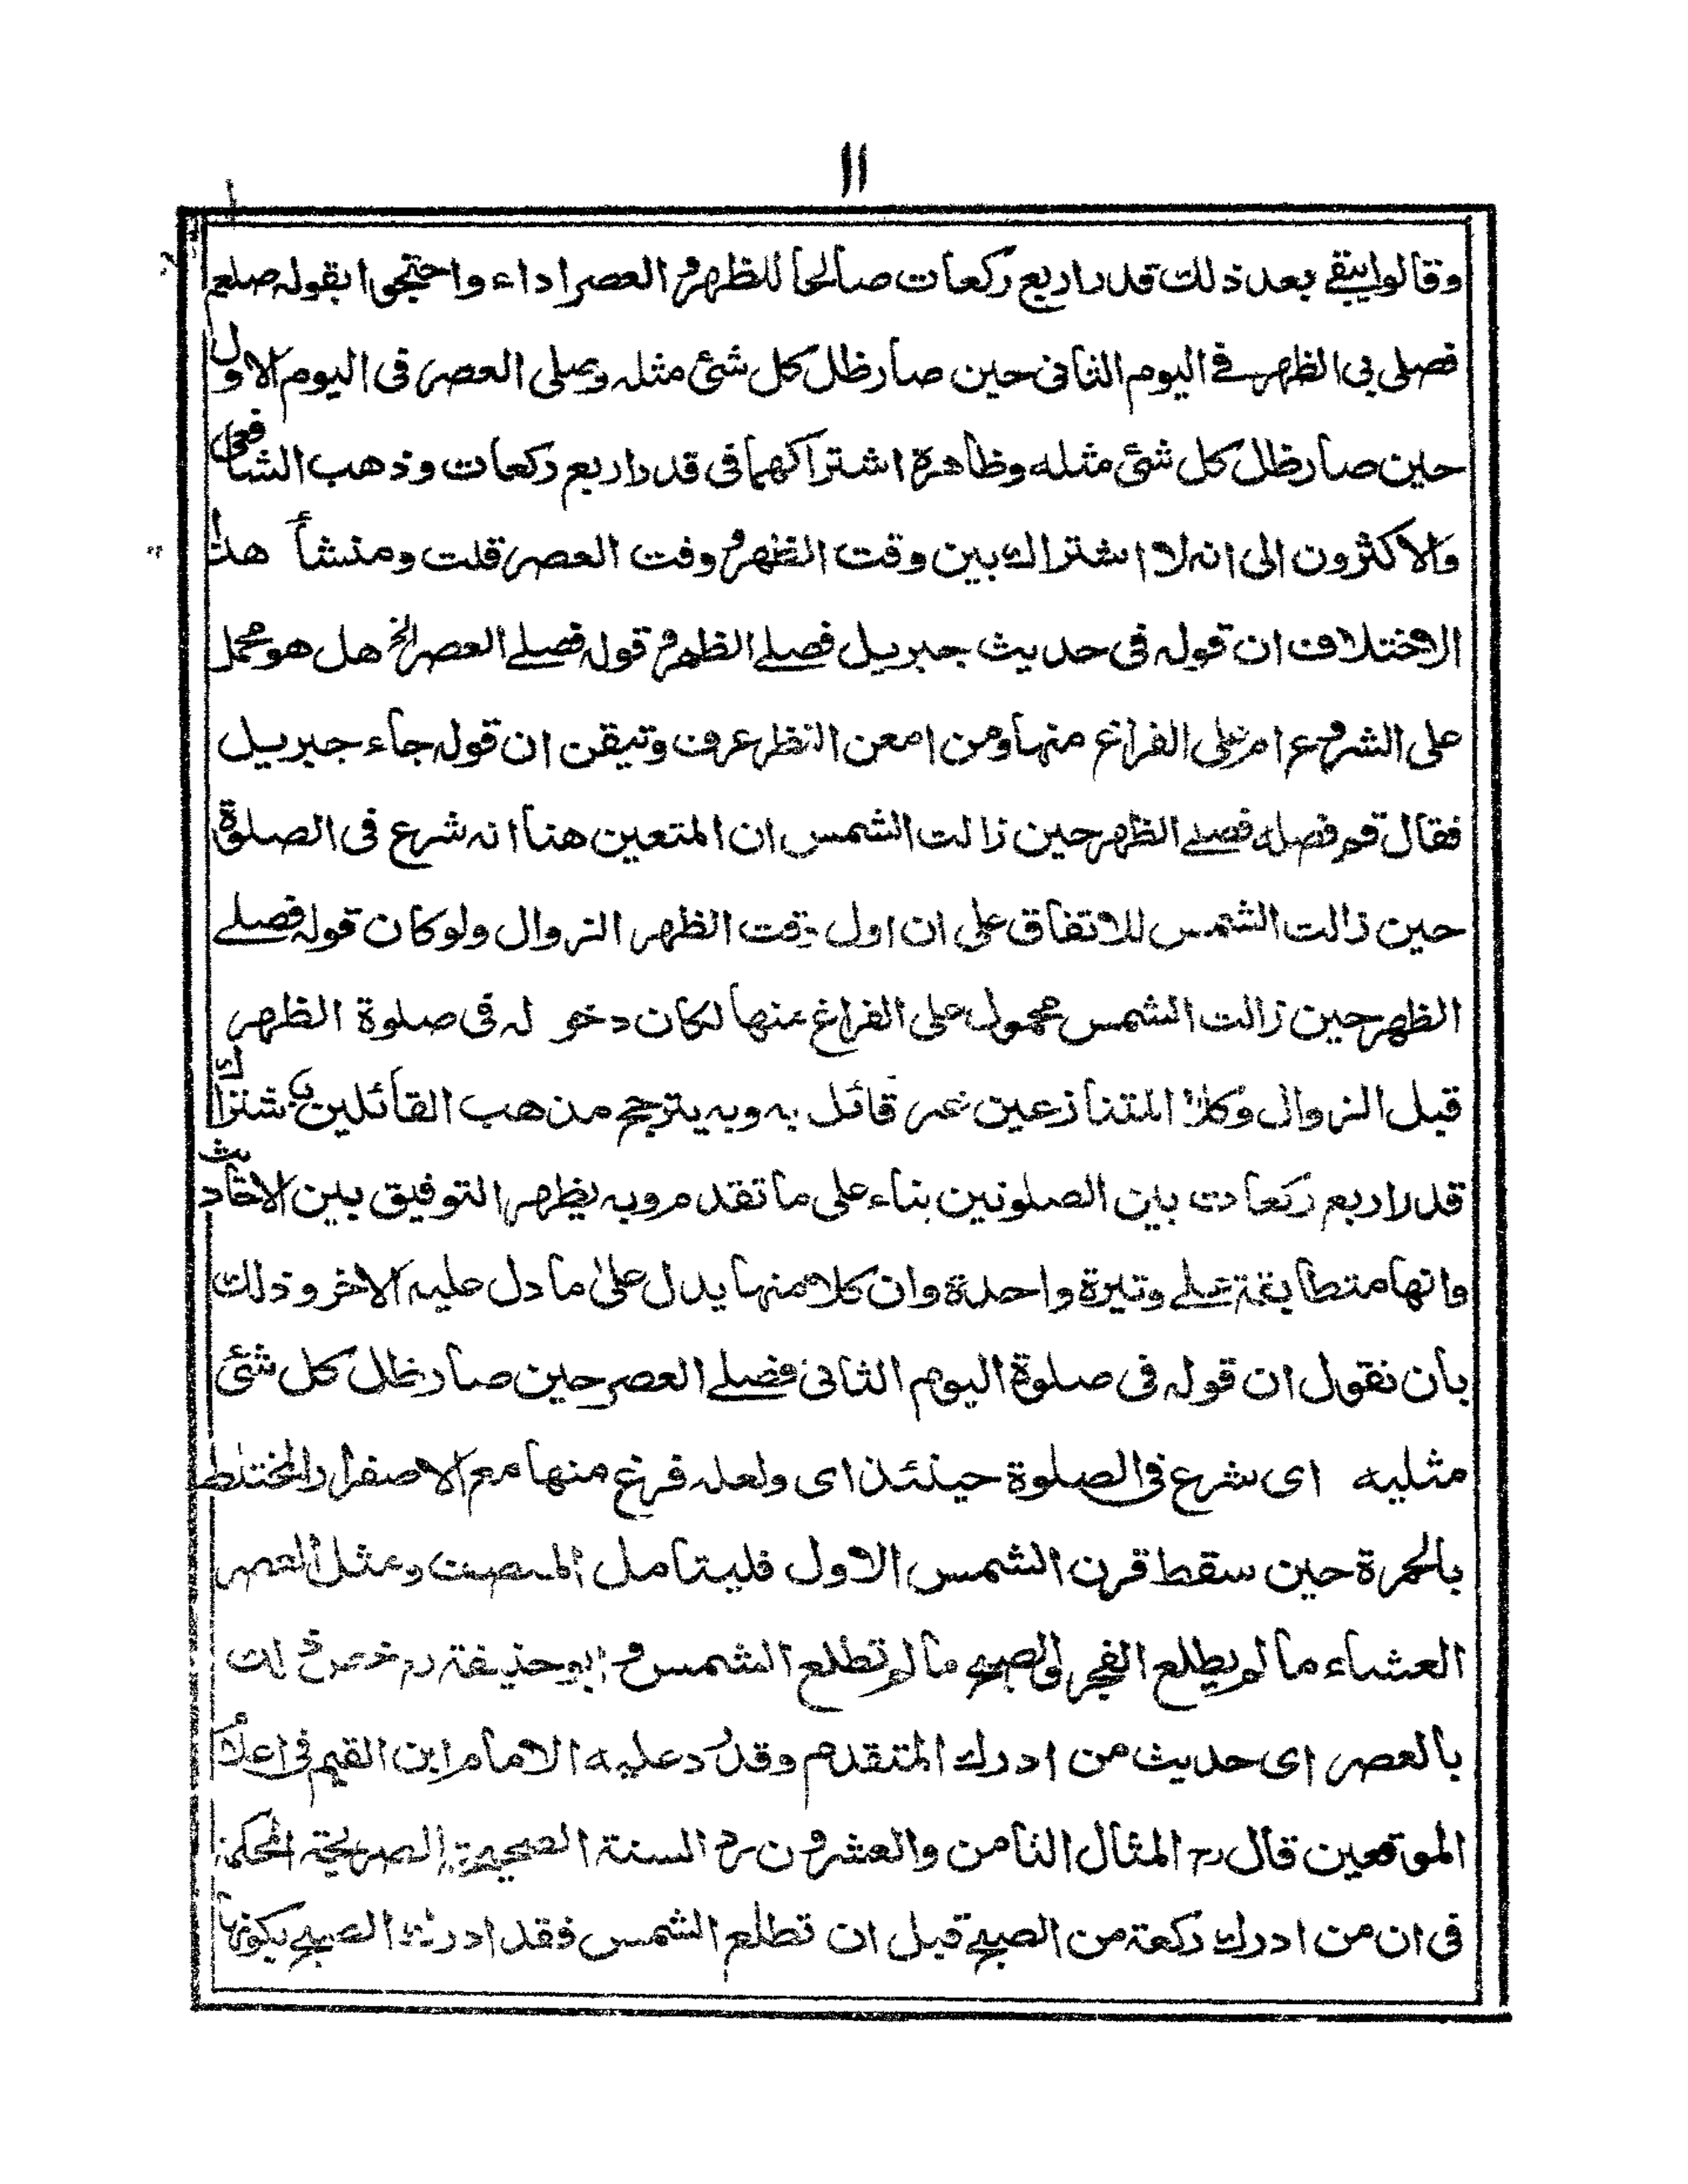 ١١
وقالوا يبقے بعد ذلك قدر اربع ركعات صالحا للظهر و العصر اداء واحتجوا بقوله صلعم
فصلى بى الظهر فے اليوم الثانى حين صار ظل كل شئ مثله وصلى العصر فى اليوم الاول
حين صار ظل كل شئ مثله وظاهرة اشتراكهما فى قدر اربع ركعات وذهب الشافعى
والاكثرون الى انه لا اشتراك بين وقت الظهر و وقت العصر قلت ومنشأ هذا
الاختلاف ان قوله فى حديث جبريل فصلے الظهر و قوله فصلے العصر الخ هل هو محمل
على الشروع ام على الفراغ منها ومن امعن النظر عرف وتيقن ان قوله جاء جبريل
فقال قم فصله فصلے الظهر حين زالت الشمس ان المتعين هنا انه شرع فى الصلوة
حين زالت الشمس للاتفاق على ان اول وقت الظهر الزوال ولو كان قوله فصلے
الظهر حين زالت الشمس محمول على الفراغ منها لكان دخوله فى صلوة الظهر
قبل الزوال وكلا المتنازعين غير قائل به وبه يترجح مذهب القائلين باشتراك
قدر اربع ركعات بين الصلوتين بناء على ما تقدم وبه يظهر التوفيق بين الاحاديث
وانها متطابقة علے وتيرة واحدة وان كلا منها يدل على ما دل عليه الاخر وذلك
بان نقول ان قوله فى صلوة اليوم الثانى فصلے العصر حين صار ظل كل شئ
مثليه اى شرع فى الصلوة حينئذ اى ولعله فرغ منها مع الاصفرار المختلط
بالحمرة حين سقط قرن الشمس الاول فليتامل المنصف ومثل العصر
العشاء ما لم يطلع الفجر والصبح ما لم تطلع الشمس و ابو حنيفة رح خص ذلك
بالعصر اى حديث من ادرك المتقدم وقد رد عليه الامام ابن القيم فى اعلام
الموقعين قال رح المثال الثامن والعشرون رد السنة الصحيحة الصريحة المحكمة
فى ان من ادرك ركعة من الصبح قبل ان تطلع الشمس فقد ادرك الصبح بكونها